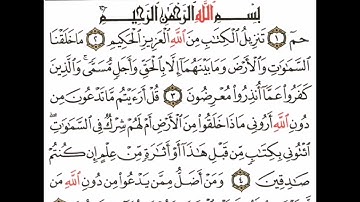 بِسْمِ اللَّهِ الرَّحْمَٰنِ الرَّحِيمِ
حمٓ ١ تَنزِيلُ الْكِتَٰبِ مِنَ اللَّهِ الْعَزِيزِ الْحَكِيمِ ٢ مَا خَلَقْنَا
السَّمَٰوَٰتِ وَالْأَرْضَ وَمَا بَيْنَهُمَآ إِلَّا بِالْحَقِّ وَأَجَلٍ مُّسَمًّى وَالَّذِينَ
كَفَرُوا۟ عَمَّآ أُنذِرُوا۟ مُعْرِضُونَ ٣ قُلْ أَرَءَيْتُم مَّا تَدْعُونَ مِن
دُونِ اللَّهِ أَرُونِى مَاذَا خَلَقُوا۟ مِنَ الْأَرْضِ أَمْ لَهُمْ شِرْكٌ فِى السَّمَٰوَٰتِ
ائْتُونِى بِكِتَٰبٍ مِّن قَبْلِ هَٰذَآ أَوْ أَثَٰرَةٍ مِّنْ عِلْمٍ إِن كُنتُمْ
صَٰدِقِينَ ٤ وَمَنْ أَضَلُّ مِمَّن يَدْعُوا۟ مِن دُونِ اللَّهِ مَن